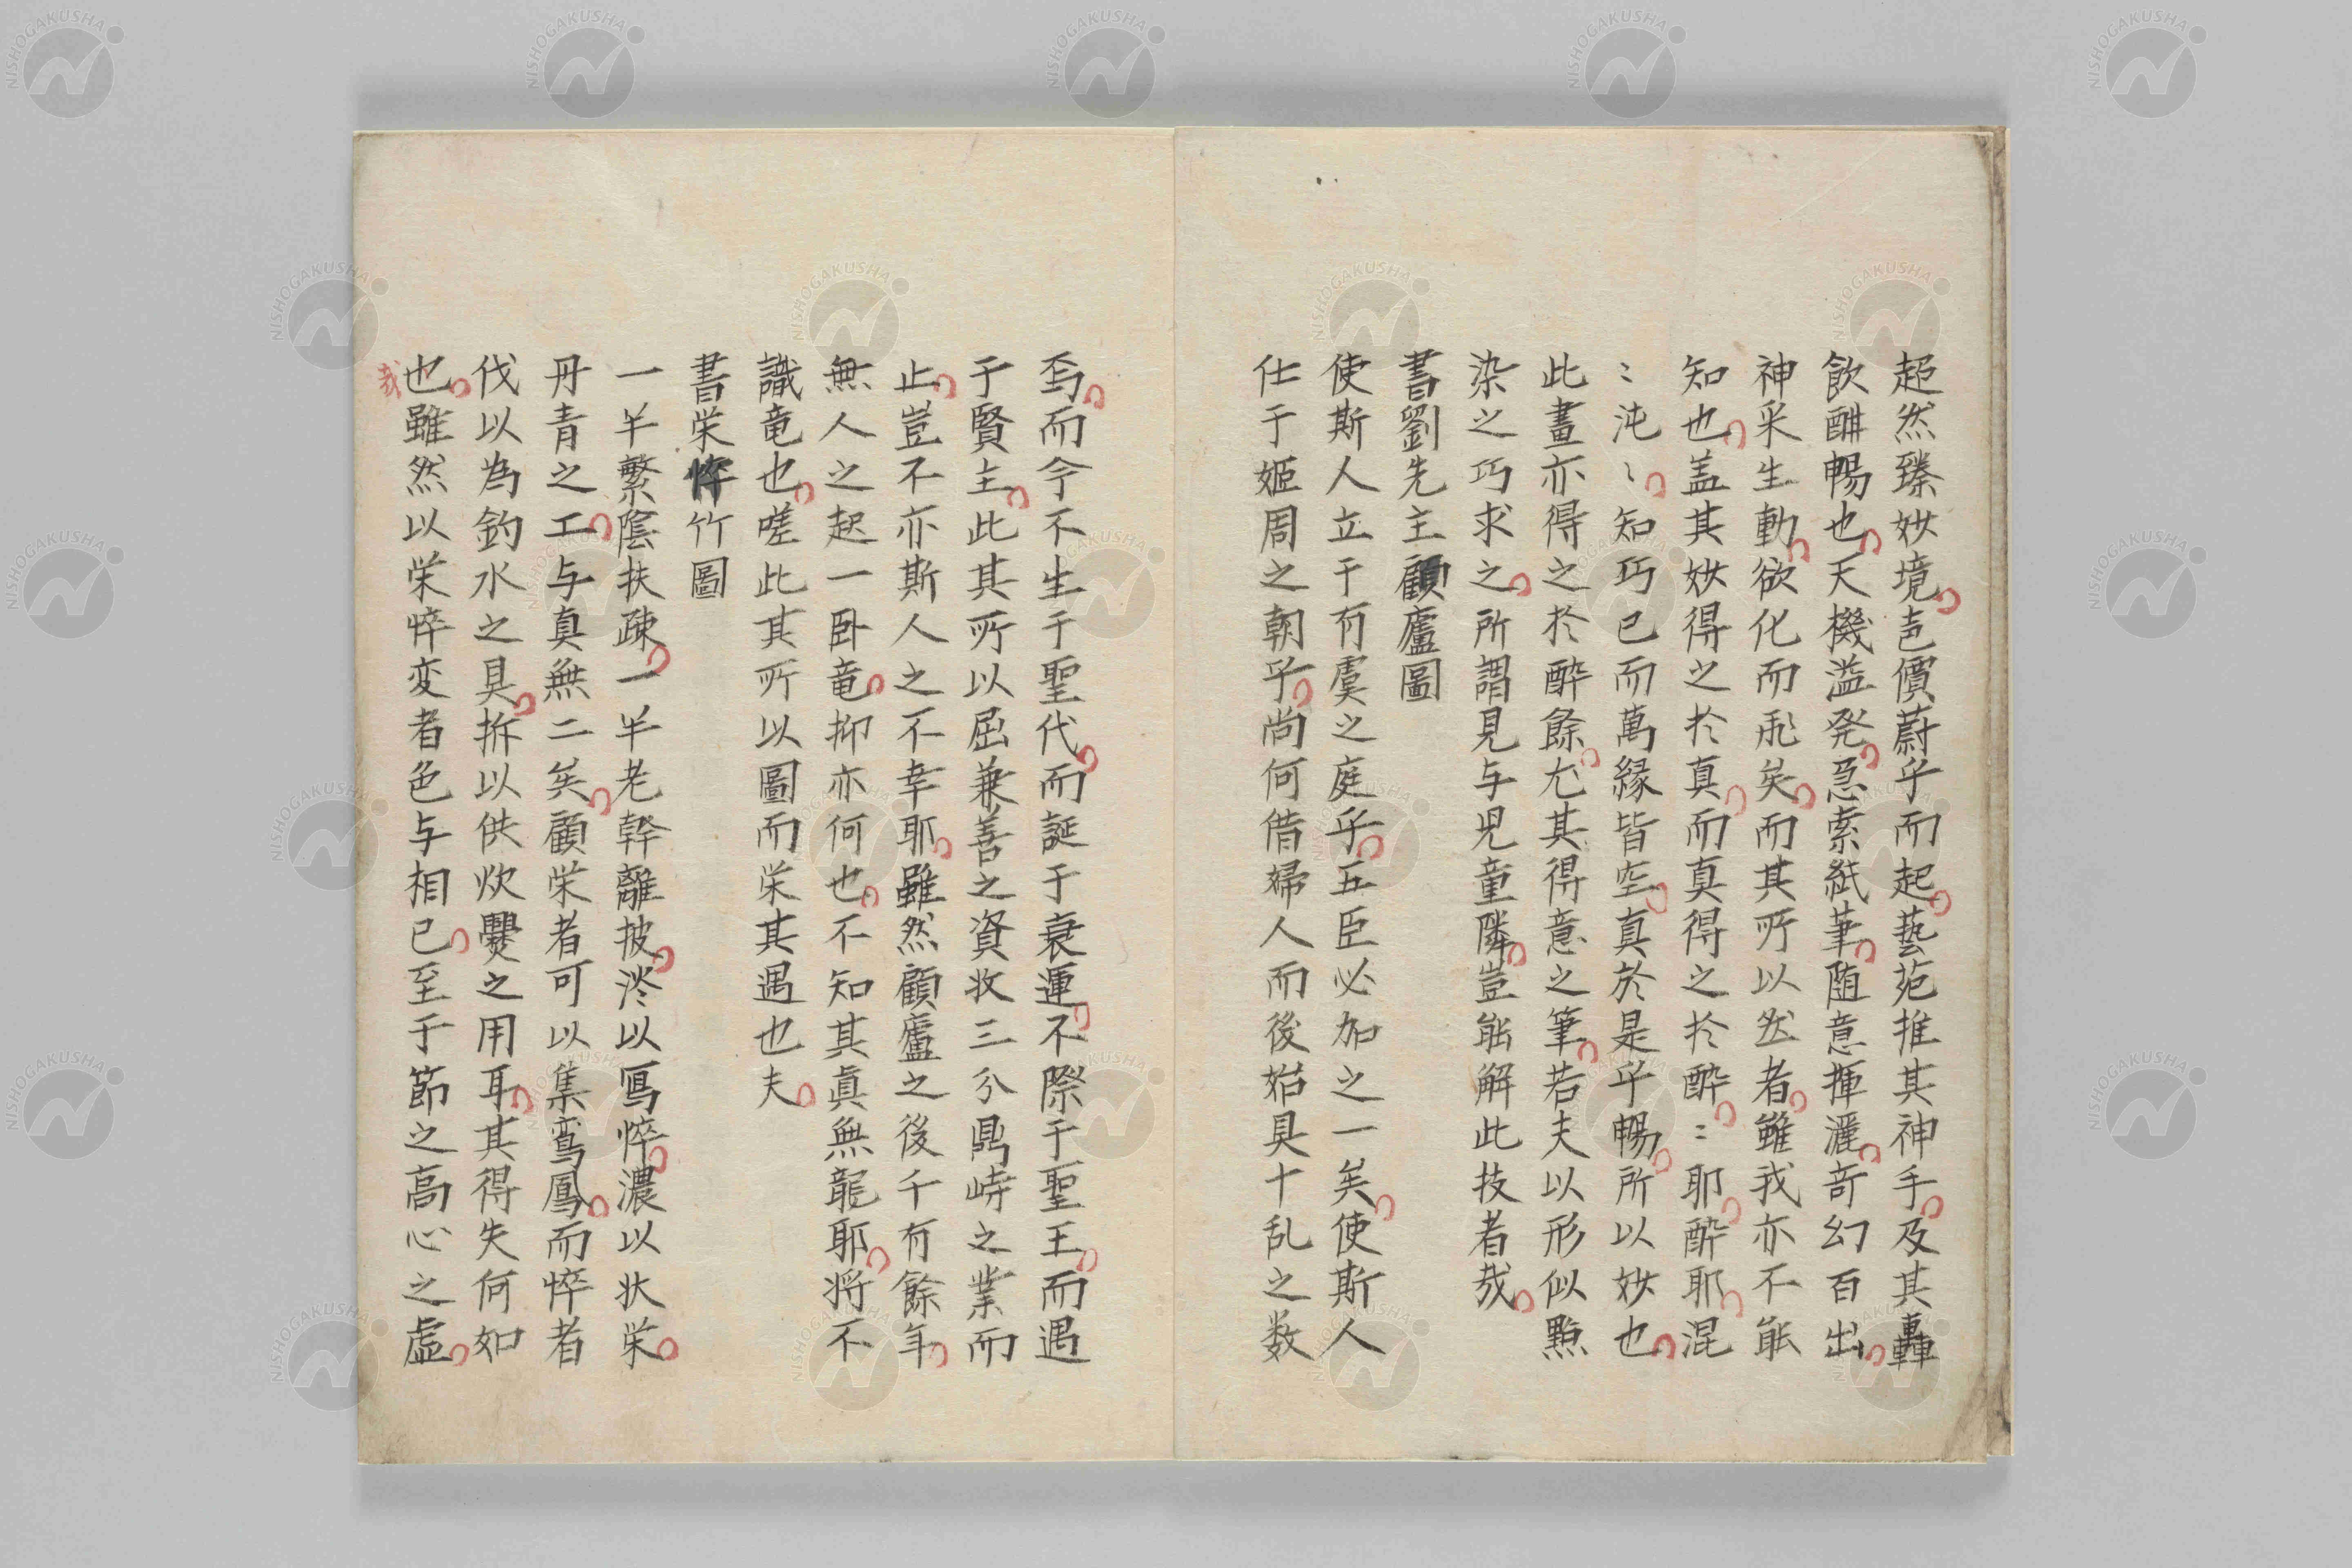 超然臻妙境声價蔚乎而起藝苑推其神手及其轟
飲酣暢也天機溢発急索紙筆随意揮灑奇幻百出
神采生動欲化而飛矣而其所以然者雖我亦不能
知也盖其妙得之於真而真得之於酔〻耶酔耶混
〻沌〻知巧已而萬縁皆空真於是乎暢所以妙也
此畫亦得之於酔餘尤其得意之筆若夫以形似點
染之巧求之所謂見与児童隣豈能解此技者哉
書劉先主顧廬圖
使斯人立于有虞之庭乎五臣必加之一矣使斯人
仕于姫周之朝乎尚何借婦人而後始具十乱之数
焉而今不生于聖代而誕于衰運不際于聖王而遇
于賢主此其所以屈兼善之資收三分鼎峙之業而
止豈不亦斯人之不幸耶雖然顧廬之後千有餘年
無人之起一卧竜抑亦何也不知其眞無龍耶将不
識竜也嗟此其所以圖而栄其遇也夫
書栄悴竹圖
一半繁陰扶疎一半老幹離披淡以寫悴濃以状栄
丹青之工与真無二矣顧栄者可以集鸞鳳而悴者
伐以為釣水之具拆以供炊爨之用耳其得失何如
也雖然以栄悴変者色与相已至于節之高心之虚
哉
NISHOGAKUSHA